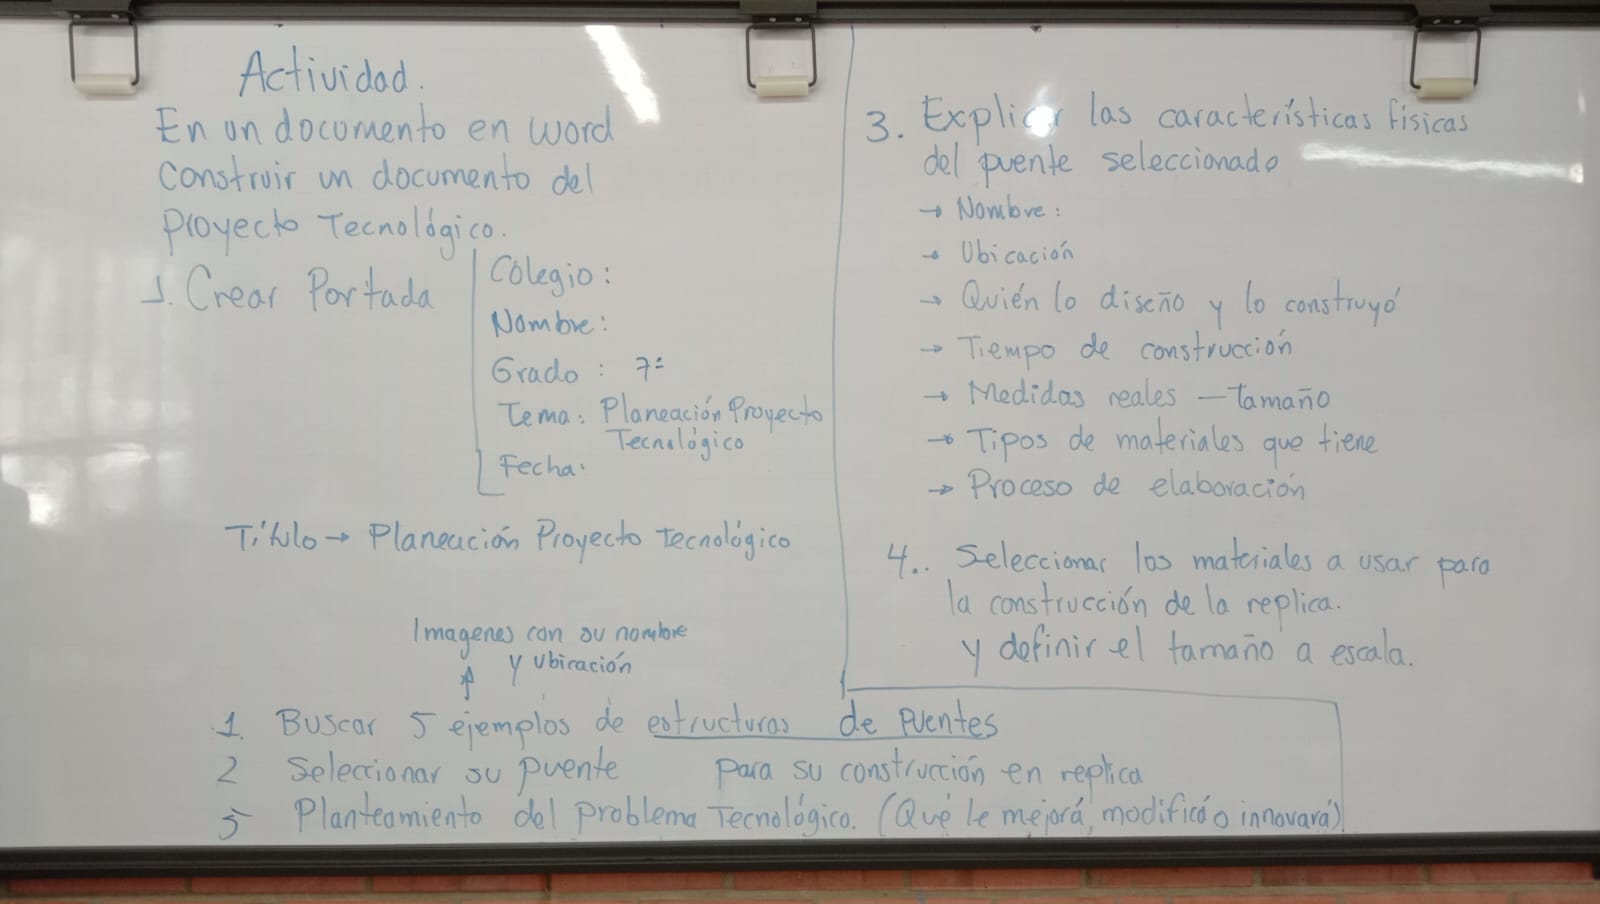 Actividad.
En un documento en word
construir un documento del
Proyecto Tecnológico.
1. Crear Portada
Colegio:
Nombre:
Grado: 7º
Tema: Planeación Proyecto
Tecnológico
Fecha:
Título → Planeación Proyecto tecnológico
Imagenes con su nombre
y ubicación
1. Buscar 5 ejemplos de estructuras de Puentes
2 Seleccionar su puente para su construcción en replica
5 Planteamiento del Problema Tecnológico. (Qué le mejorá, modificó o innovará)
3. Explicar las características físicas
del puente seleccionado
→ Nombre:
→ Ubicación
→ Quién lo diseño y lo construyó
→ Tiempo de construcción
→ Medidas reales — tamaño
→ Tipos de materiales que tiene
→ Proceso de elaboración
4.. Seleccionar los materiales a usar para
la construcción de la replica.
y definir el tamaño a escala.